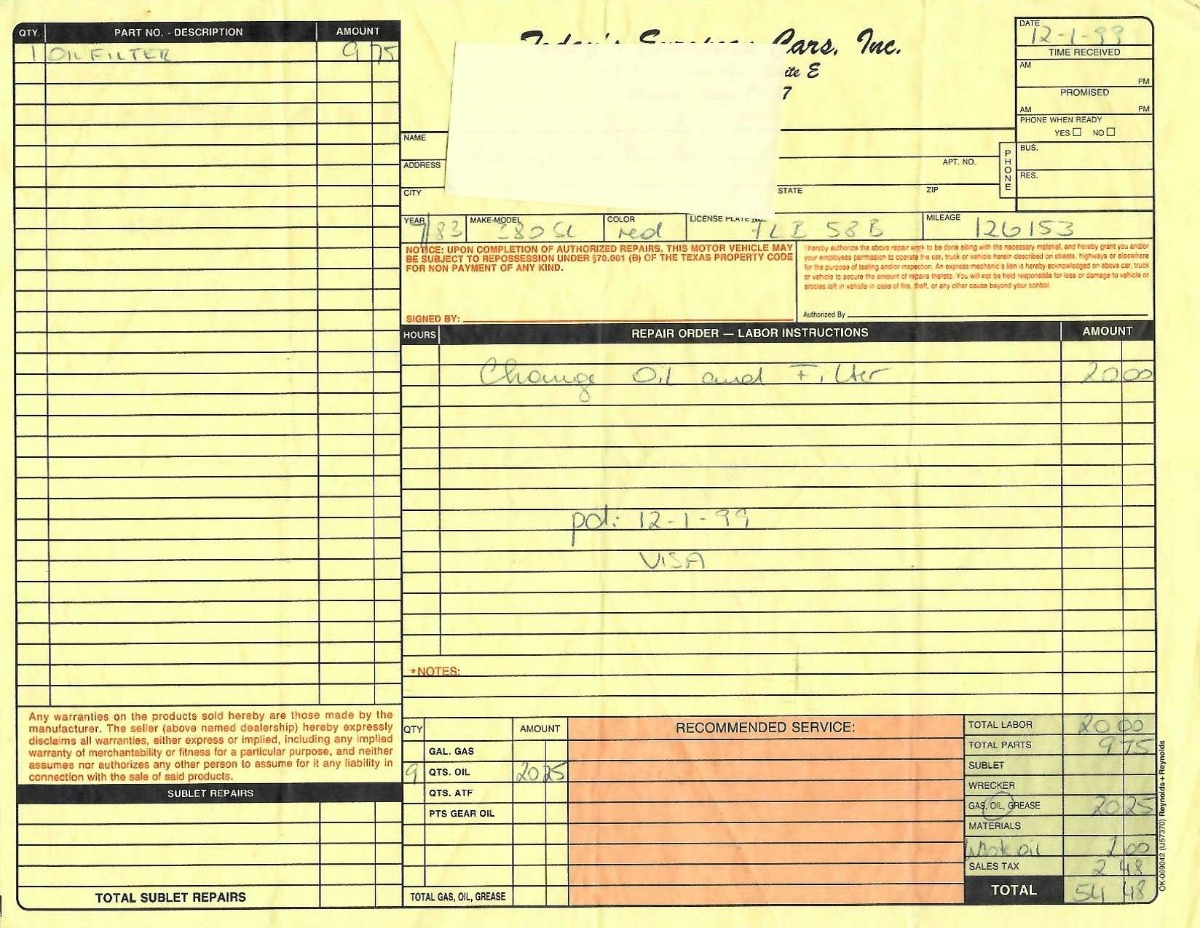 Today's European Cars, Inc.
ite E
7
DATE 12-1-99
TIME RECEIVED
AM
PM
PROMISED
AM PM
PHONE WHEN READY
YES NO
QTY. PART NO. - DESCRIPTION AMOUNT
1 OIL FILTER 9 75
NAME
ADDRESS APT. NO.
CITY STATE ZIP
PHONE
BUS.
RES.
YEAR 83 MAKE-MODEL 380 SL COLOR red LICENSE PLATE NO. 7LB 58B MILEAGE 126153
NOTICE: UPON COMPLETION OF AUTHORIZED REPAIRS, THIS MOTOR VEHICLE MAY
BE SUBJECT TO REPOSSESSION UNDER §70.001 (B) OF THE TEXAS PROPERTY CODE
FOR NON PAYMENT OF ANY KIND.
SIGNED BY:
I hereby authorize the above repair work to be done along with the necessary material, and hereby grant you and/or
your employees permission to operate the car, truck or vehicle herein described on streets, highways or elsewhere
for the purpose of testing and/or inspection. An express mechanic's lien is hereby acknowledged on above car, truck
or vehicle to secure the amount of repairs thereto. You will not be held responsible for loss or damage to vehicle or
articles left in vehicle in case of fire, theft, or any other cause beyond your control.
Authorized By
HOURS REPAIR ORDER — LABOR INSTRUCTIONS AMOUNT
Change Oil and Filter 20 00
pd: 12-1-99
VISA
*NOTES:
Any warranties on the products sold hereby are those made by the
manufacturer. The seller (above named dealership) hereby expressly
disclaims all warranties, either express or implied, including any implied
warranty of merchantability or fitness for a particular purpose, and neither
assumes nor authorizes any other person to assume for it any liability in
connection with the sale of said products.
SUBLET REPAIRS
TOTAL SUBLET REPAIRS
QTY AMOUNT
GAL. GAS
9 QTS. OIL 20 25
QTS. ATF
PTS GEAR OIL
TOTAL GAS, OIL, GREASE
RECOMMENDED SERVICE:
TOTAL LABOR 20 00
TOTAL PARTS 9 75
SUBLET
WRECKER
GAS, OIL, GREASE 20 25
MATERIALS
Waste oil 2 00
SALES TAX 2 48
TOTAL 54 48
OK-069042 (U57370) Reynolds + Reynolds